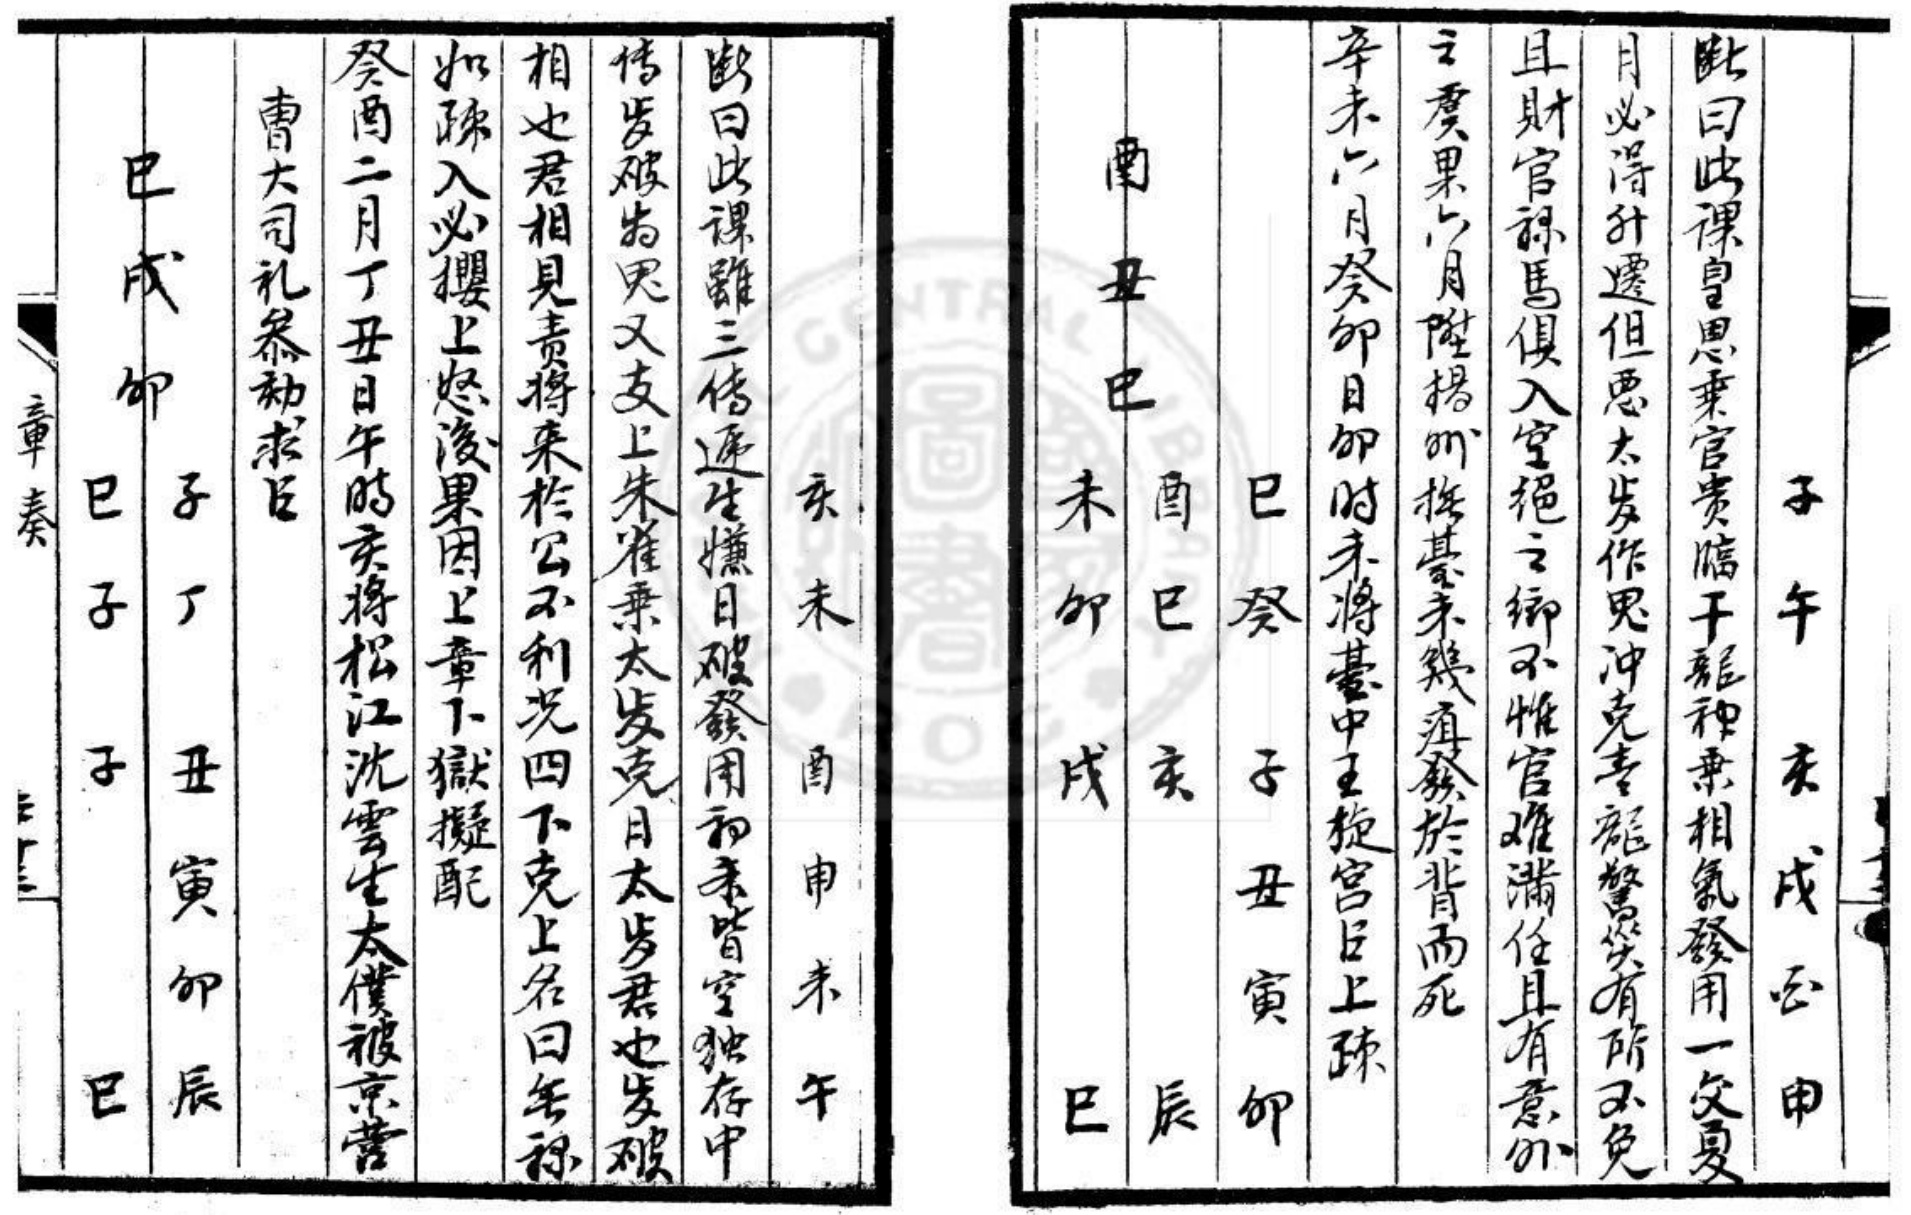 子午　亥戌酉申
断曰此课皇恩乗官贵臨干龍神乗相氣發用一交夏
月必得升遷但恶太岁作鬼冲克青龍驚災有所不免
且財官禄馬俱入空绝之鄉不惟官难满任且有意外
之虞果六月陞揚州撫臺未幾疽發於背而死
辛未六月癸卯日卯时未将臺中王旋宫占上疏
巳癸　子丑寅卯
酉丑巳
酉巳　亥　辰
未卯　戌　巳
亥未　酉申未午
断曰此课雖三传逓生嫌日破發用初末皆空独存中
传岁破为鬼又支上朱雀乗太岁克日太岁君也岁破
相也君相見责将来於公不利况四下克上名曰无禄
如疏入必攖上怒後果因上章下獄擬配
癸酉二月丁丑日午時亥将松江沈雲生太僕被京营
曹大司礼参劾求占
子丁　丑寅卯辰
巳戌卯
巳子　子　巳
章奏